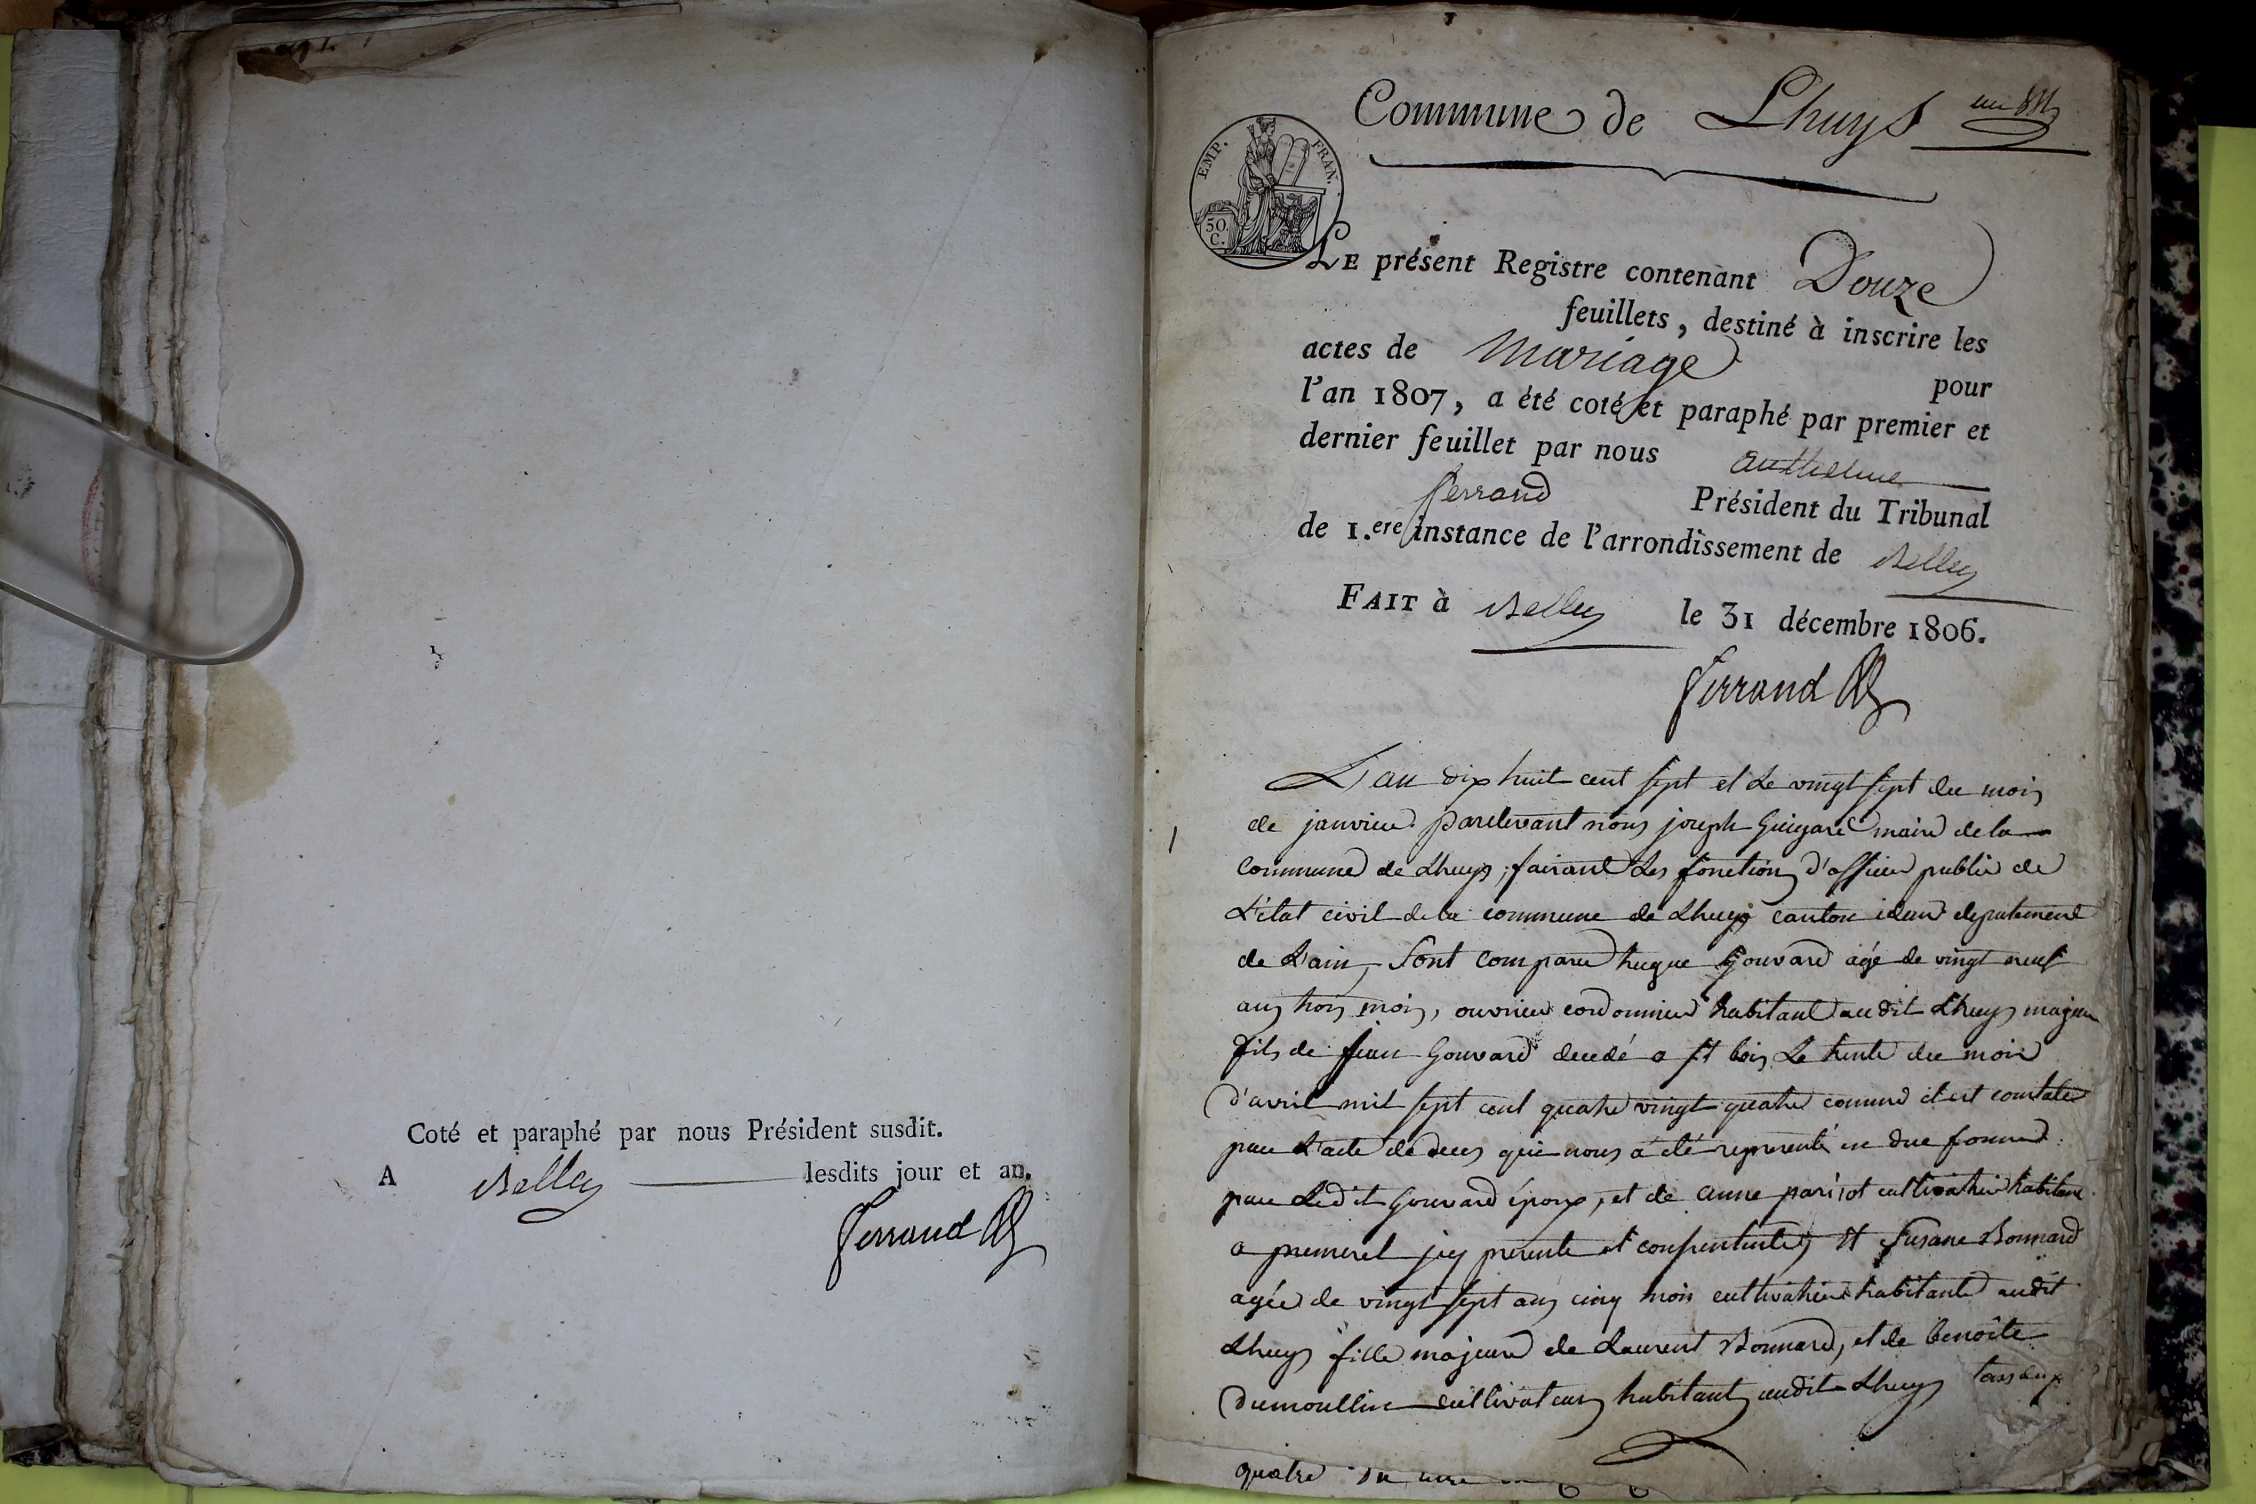 Coté et paraphé par nous Président susdit.
A Belley lesdits jour et an.
Ferrand
Commune de Lhuys
un
EMP. FRAN.
50. C.
LE présent Registre contenant Douze
feuillets, destiné à inscrire les
actes de Mariage pour
l'an 1807, a été coté et paraphé par premier et
dernier feuillet par nous anthelme
ferrand Président du Tribunal
de 1.ere instance de l'arrondissement de Belley
FAIT à Belley le 31 décembre 1806.
Ferrand
L'an dix huit cent sept et le vingt sept du mois
1
de janvier pardevant nous joseph Guigard maire de la
commune de Lhuys, faisant les fonctions d'officier public de
L'état civil de la commune de Lhuys canton idem departement
de L'ain, Sont comparu hugue Gouvard agé de vingt neuf
ans trois mois, ouvrier cordonnier habitant audit Lhuys majeur
fils de jean Gouvard decedé a st bois Le trente du mois
d'avril mil sept cent quatre vingt quatre comme il est constaté
par L'acte de deces qui nous a été representé en due forme
par Ledit Gouvard époux, et de anne parisot cultivatrice habitant
a premeyzel icy presente et consentente, et Susane Bonnard
agée de vingt sept ans cinq mois cultivatrice habitante audit
Lhuys fille majeure de Laurent Bonnard, et de benoîte
Dumoullin cultivateurs habitants audit Lhuys tous deux
quatre